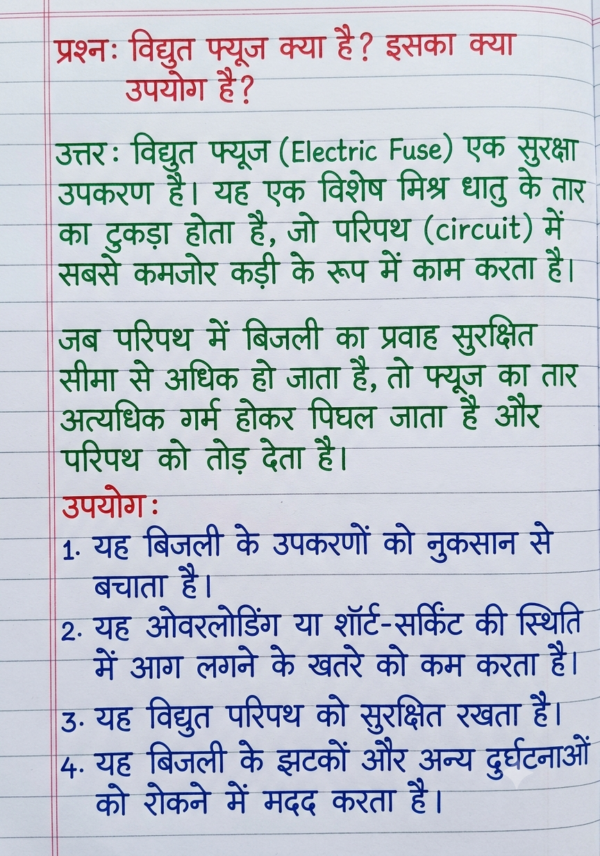 प्रश्न: विद्युत फ्यूज क्या है? इसका क्या
उपयोग है?
उत्तर: विद्युत फ्यूज (Electric Fuse) एक सुरक्षा
उपकरण है। यह एक विशेष मिश्र धातु के तार
का टुकड़ा होता है, जो परिपथ (circuit) में
सबसे कमजोर कड़ी के रूप में काम करता है।
जब परिपथ में बिजली का प्रवाह सुरक्षित
सीमा से अधिक हो जाता है, तो फ्यूज का तार
अत्यधिक गर्म होकर पिघल जाता है और
परिपथ को तोड़ देता है।
उपयोग:
1. यह बिजली के उपकरणों को नुकसान से
बचाता है।
2. यह ओवरलोडिंग या शॉर्ट-सर्किंट की स्थिति
में आग लगने के खतरे को कम करता है।
3. यह विद्युत परिपथ को सुरक्षित रखता है।
4. यह बिजली के झटकों और अन्य दुर्घटनाओं
को रोकने में मदद करता है।